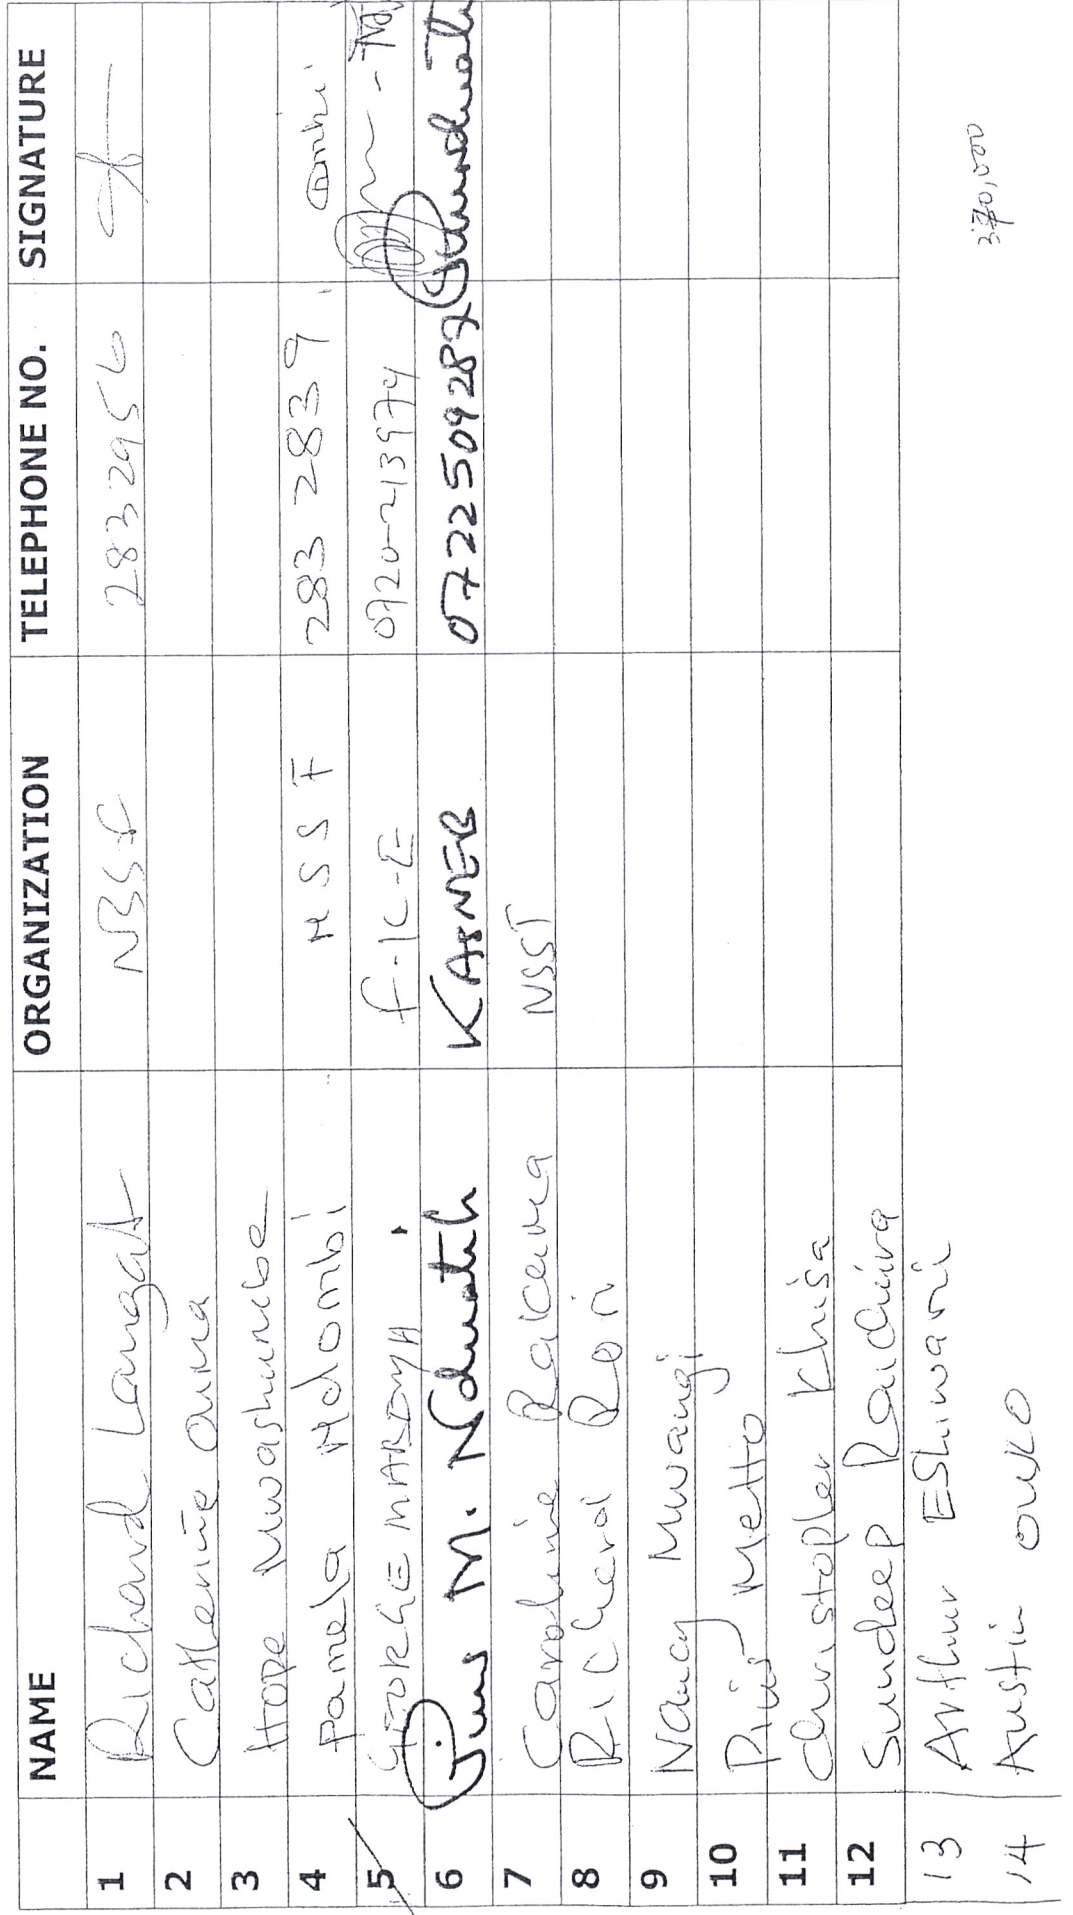 NAME ORGANIZATION TELEPHONE NO. SIGNATURE
1 Richard Langat NSSF 2832956
2 Catherine Ouma
3 Hope Mwashumbe
4 Pamela Ndombi NSSF 283 2839
5 GEORGE MABONYA F.K.E 0720-213974
6 Pius M. Nduatih KASNEB 0722509287 Nduatih
7 Caroline Rakama NSSF
8 Richard Rori
9 Nancy Mwangi
10 Pius Metto
11 Christopher Khisa
12 Sundeep Raichura
13 Arthur Eshiwani
14 Austin OUKO